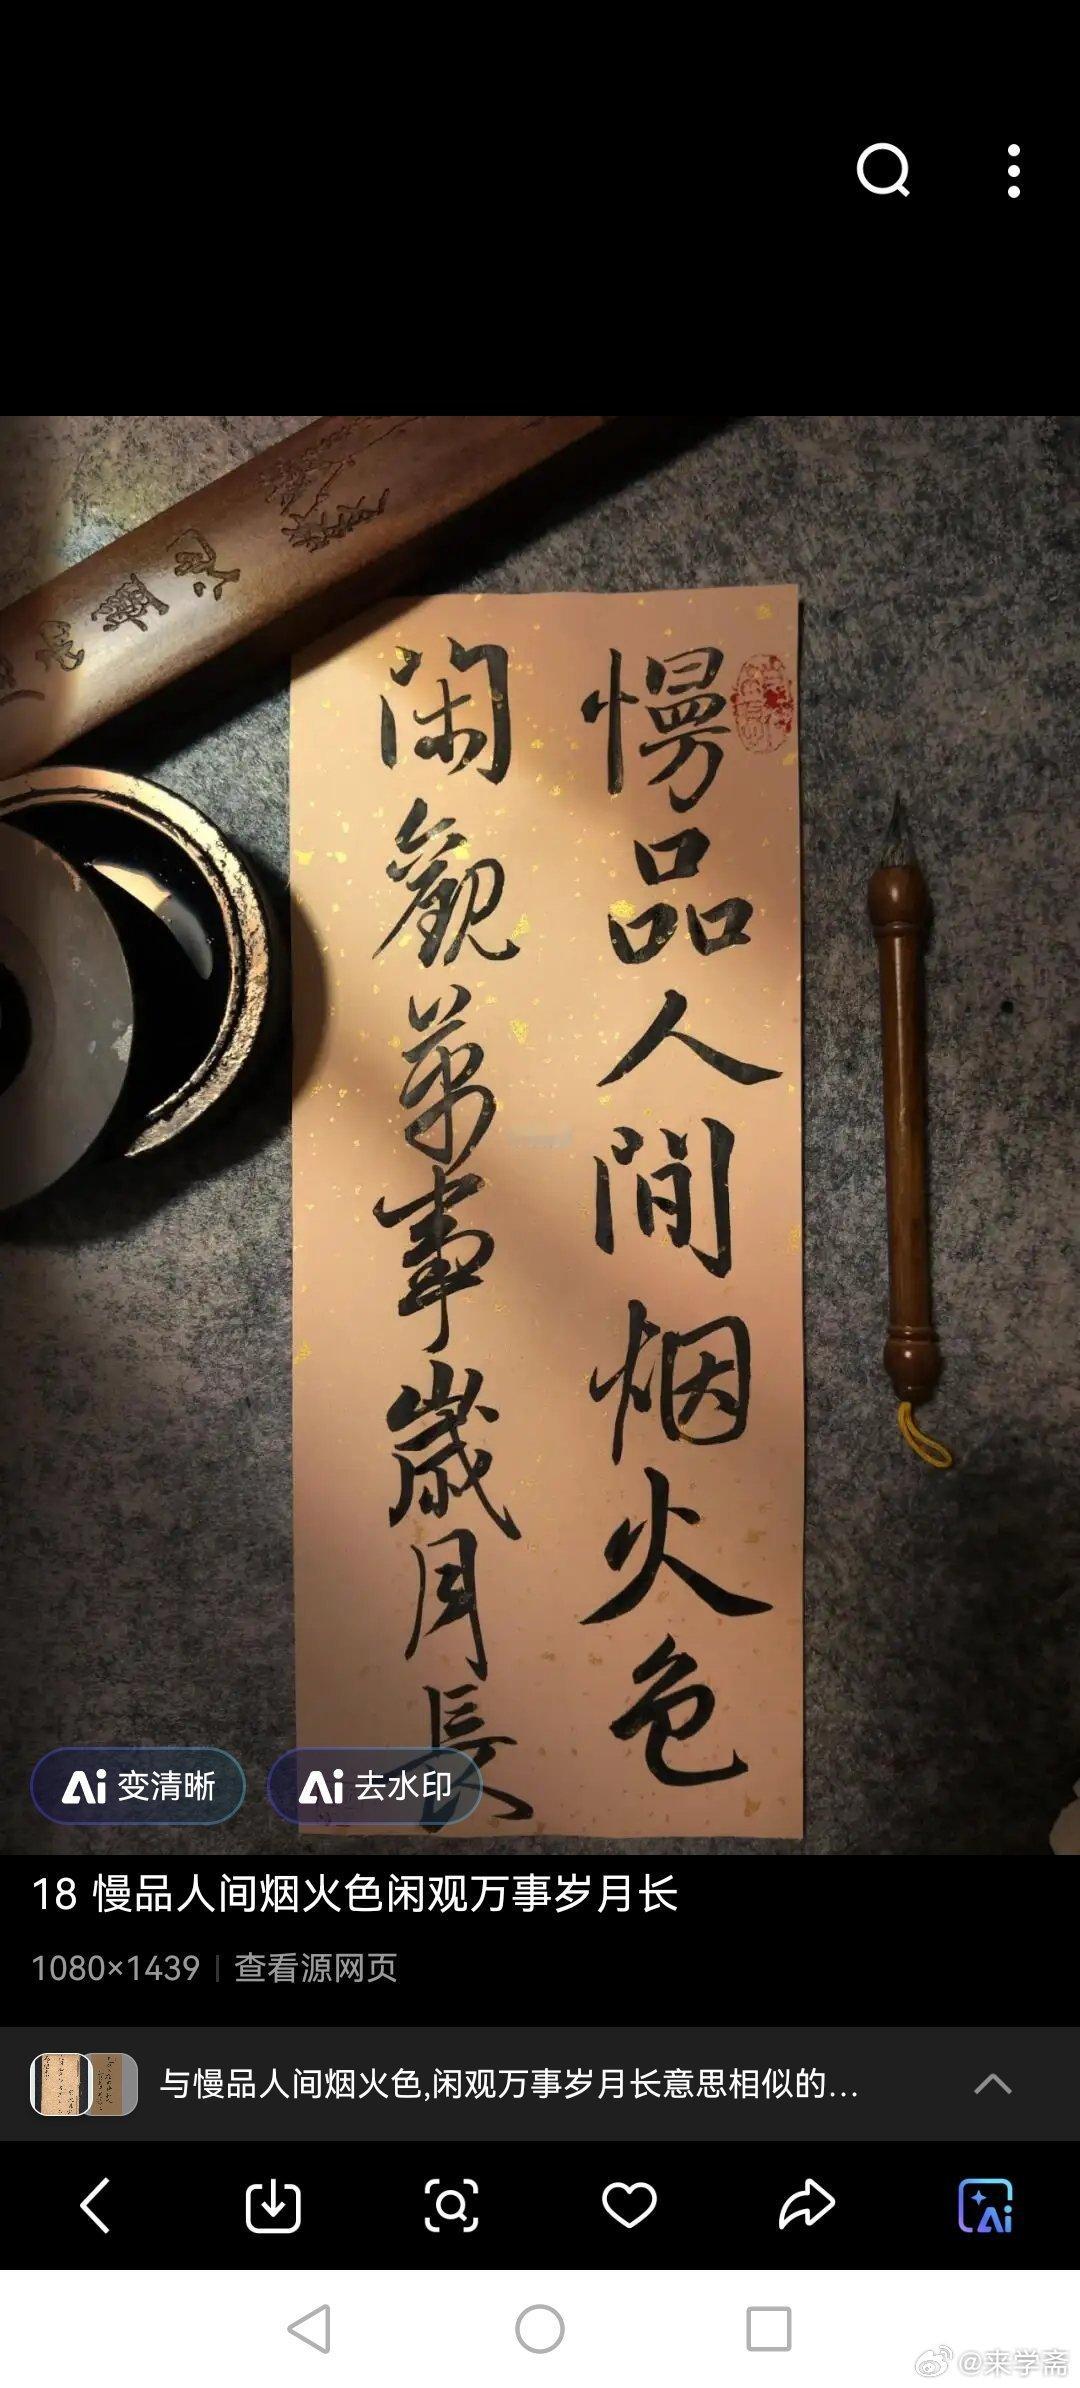 慢品人间烟火色
闲觀萬事歲月長
Ai 变清晰
Ai 去水印
18 慢品人间烟火色闲观万事岁月长
1080×1439 | 查看源网页
与慢品人间烟火色,闲观万事岁月长意思相似的…
Ai
@来学斋